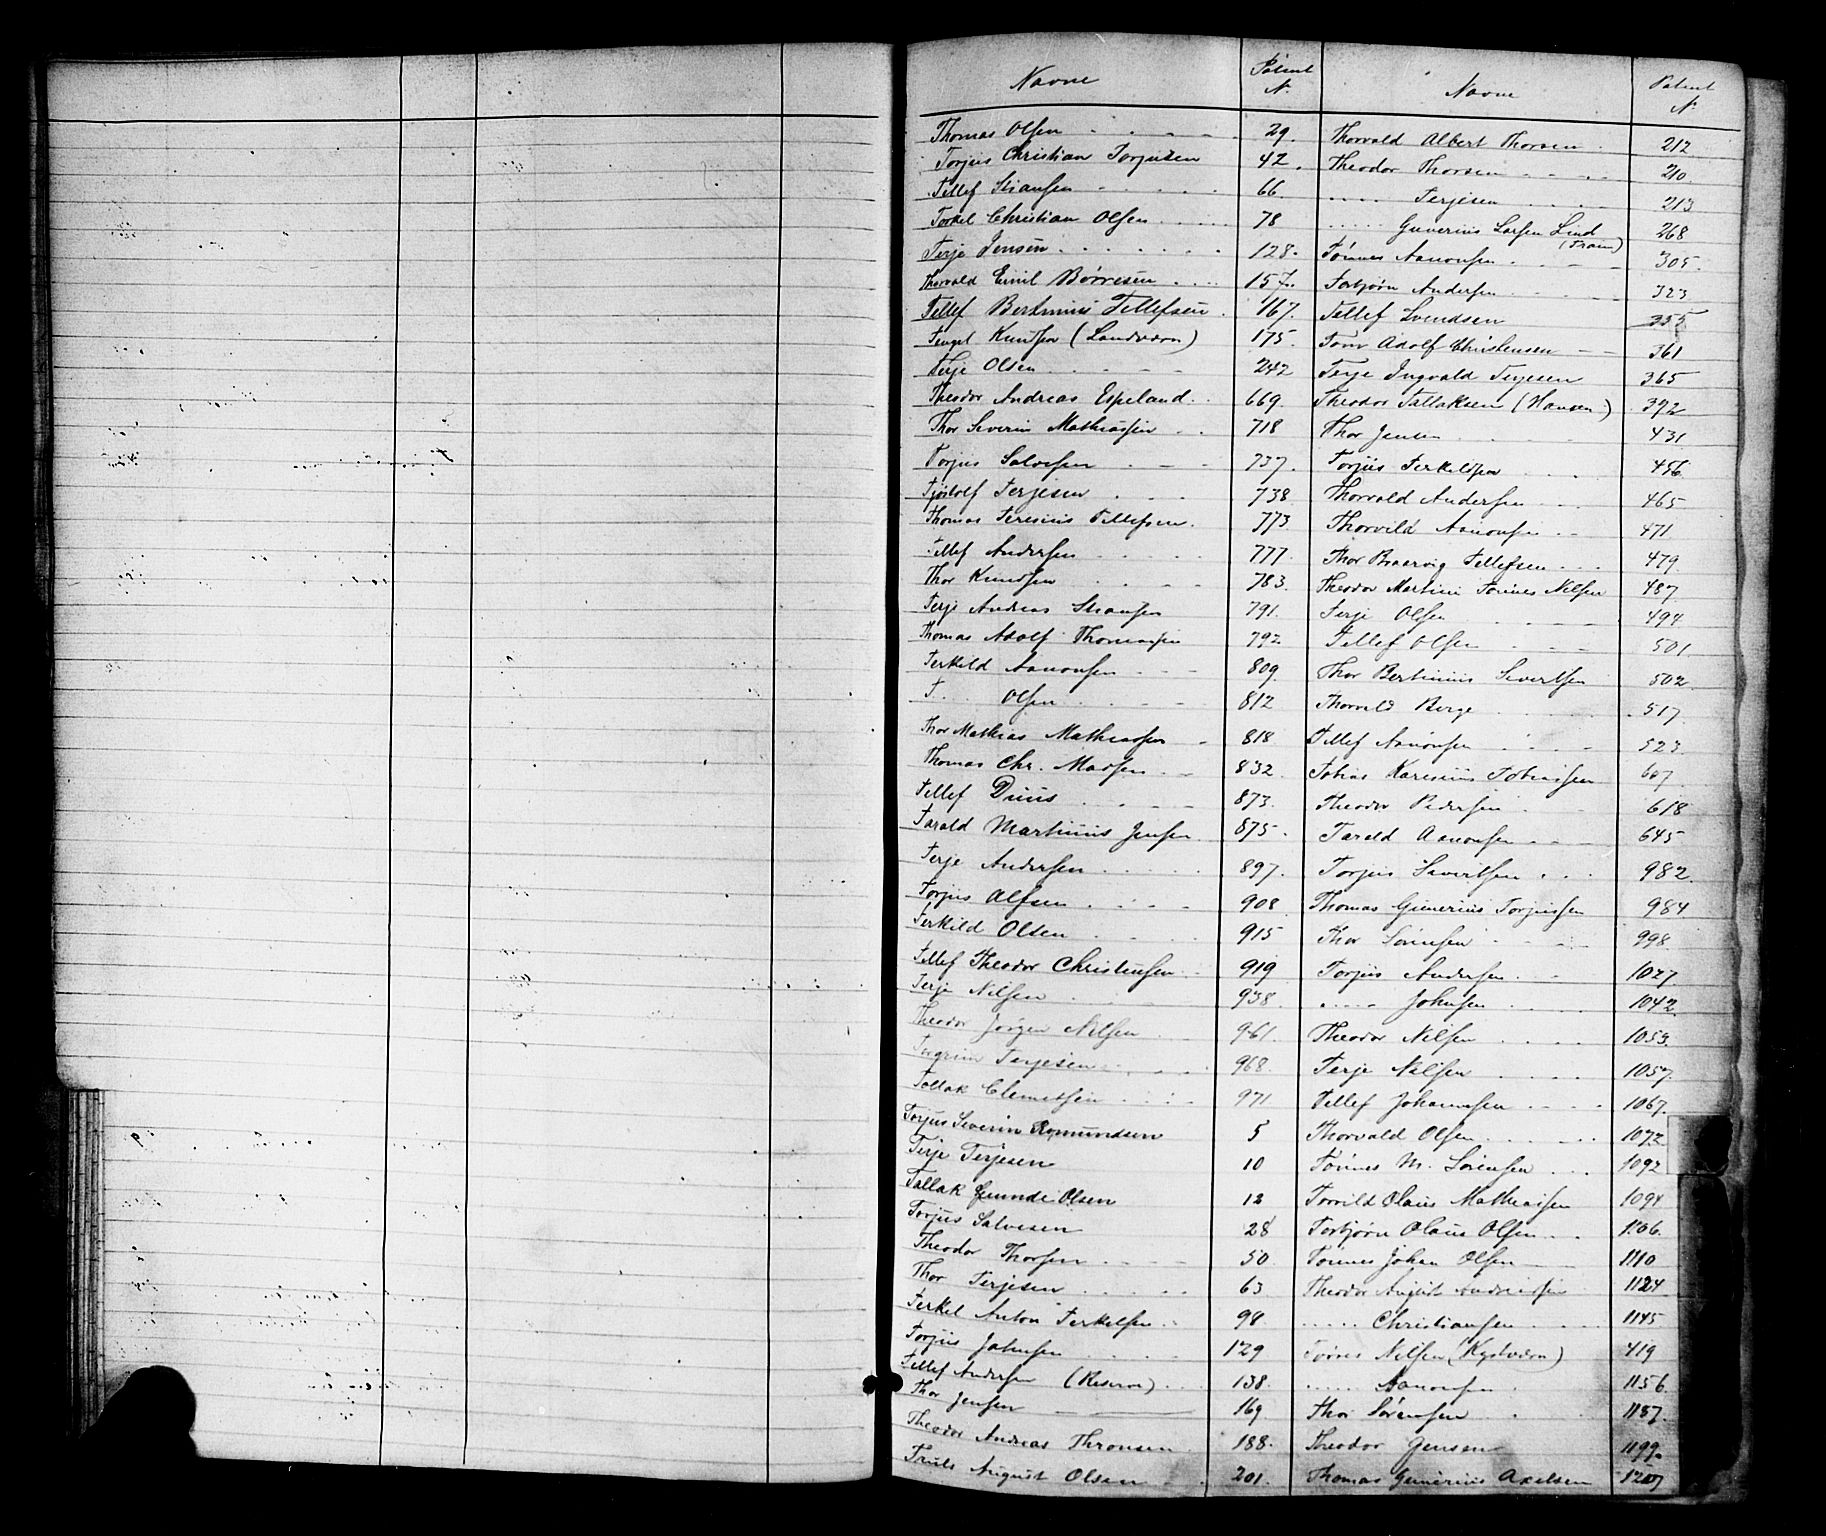 Navne Patent N. Navne Patent N.
Thomas Olsen 29. Thorvald Albert Thorsen 212
Torjus Christian Torjusen 42. Theodor Thorsen 210.
Tellef 66. Terjesen 213
Torkel Christian Olsen 78 Guverius Larsen Lind 268
Terje Jensen 128. Tönnes Aanonsen 305.
Thorvald Emil Börresen 157. Torbjörn Andersen 323
Tellef Bertinius Tellefsen 167. Tellef Svendsen 355
Knudsen (Landværn) 175. Tom Adolf Christensen 361
Terje Olsen 242 Terje Ingvald Terjesen 365
Theodor Andreas Espeland 669. Theodor Tallaksen (Hansen) 392
Thor Severin Mathiassen 718 Thor Jensen 431
Torjus Salvesen 737. Torjus Terkildsen 456.
Tjöstolf Terjesen 738 Thorvald Andersen 465
Thomas Teresius Tellefsen. 773 Thorvild Aanonsen 471
Tellef Andersen 777. Thor Braarvig Tellefsen 479
Thor Knudsen 783. Theodor Martin Tönnes Nilsen 487
Terje Andreas 791. Terje Olsen 494
Thomas Adolf Thomassen 792 Tellef Olsen 501
Terkild Aanonsen 809. Thor Bertinius Severtsen 502.
T. Olsen 812 Thorvild Berge 517.
Thor Mathias Mathiassen 818 Tellef Aanonsen 523
Thomas Chr. Madsen 832. Tobias Karenius Tobiassen 607
Tellef Duus 873. Theodor Pedersen 618
Tarald Martinius Jensen 875. Tarald Aanonsen 645
Terje Andersen 897. Torjus Severtsen 982.
Torjus Alfsen 908 Thomas Gunerius Torjussen 984
Terkild Olsen 915 Thor Sörensen 998
Tellef Theodor Christensen 919 Torjus Andersen 1027
Terje Nilsen 938. Johnsen 1042
Theodor Jörgen Nilsen 961. Theodor Nilsen 1053.
Torgrim Terjesen 968. Terje Nilsen 1057.
Tollak Clemetsen 971 Tellef Johannesen 1067.
Torjus Severin Romundsen 5 Thorvald Olsen 1072
Terje Terjesen 10 Tönnes M. Sörensen 1092
Tallak Gunde Olsen 12 Torvild Olaus Mathiassen 1094
Torjus Salvesen 28 Torbjörn Olaus Olsen 1106.
Theodor Thorsen 50. Tönnes Johan Olsen 1110
Thor Terjesen 63 Theodor August Andreassen 1124
Terkel Anton Terkelsen 98 Christiansen 1145
Torjus Johnsen 129 Tönnes Nilsen (Kystværn) 419
Tellef Andersen (Reserve) 138. Aanonsen 1156.
Thor Jensen 169 Thor Sörensen 1157.
Theodor Andreas Thronsen 188. Theodor Jensen 1199.
Truls August Olsen 201. Thomas Gunerius Axelsen 1207